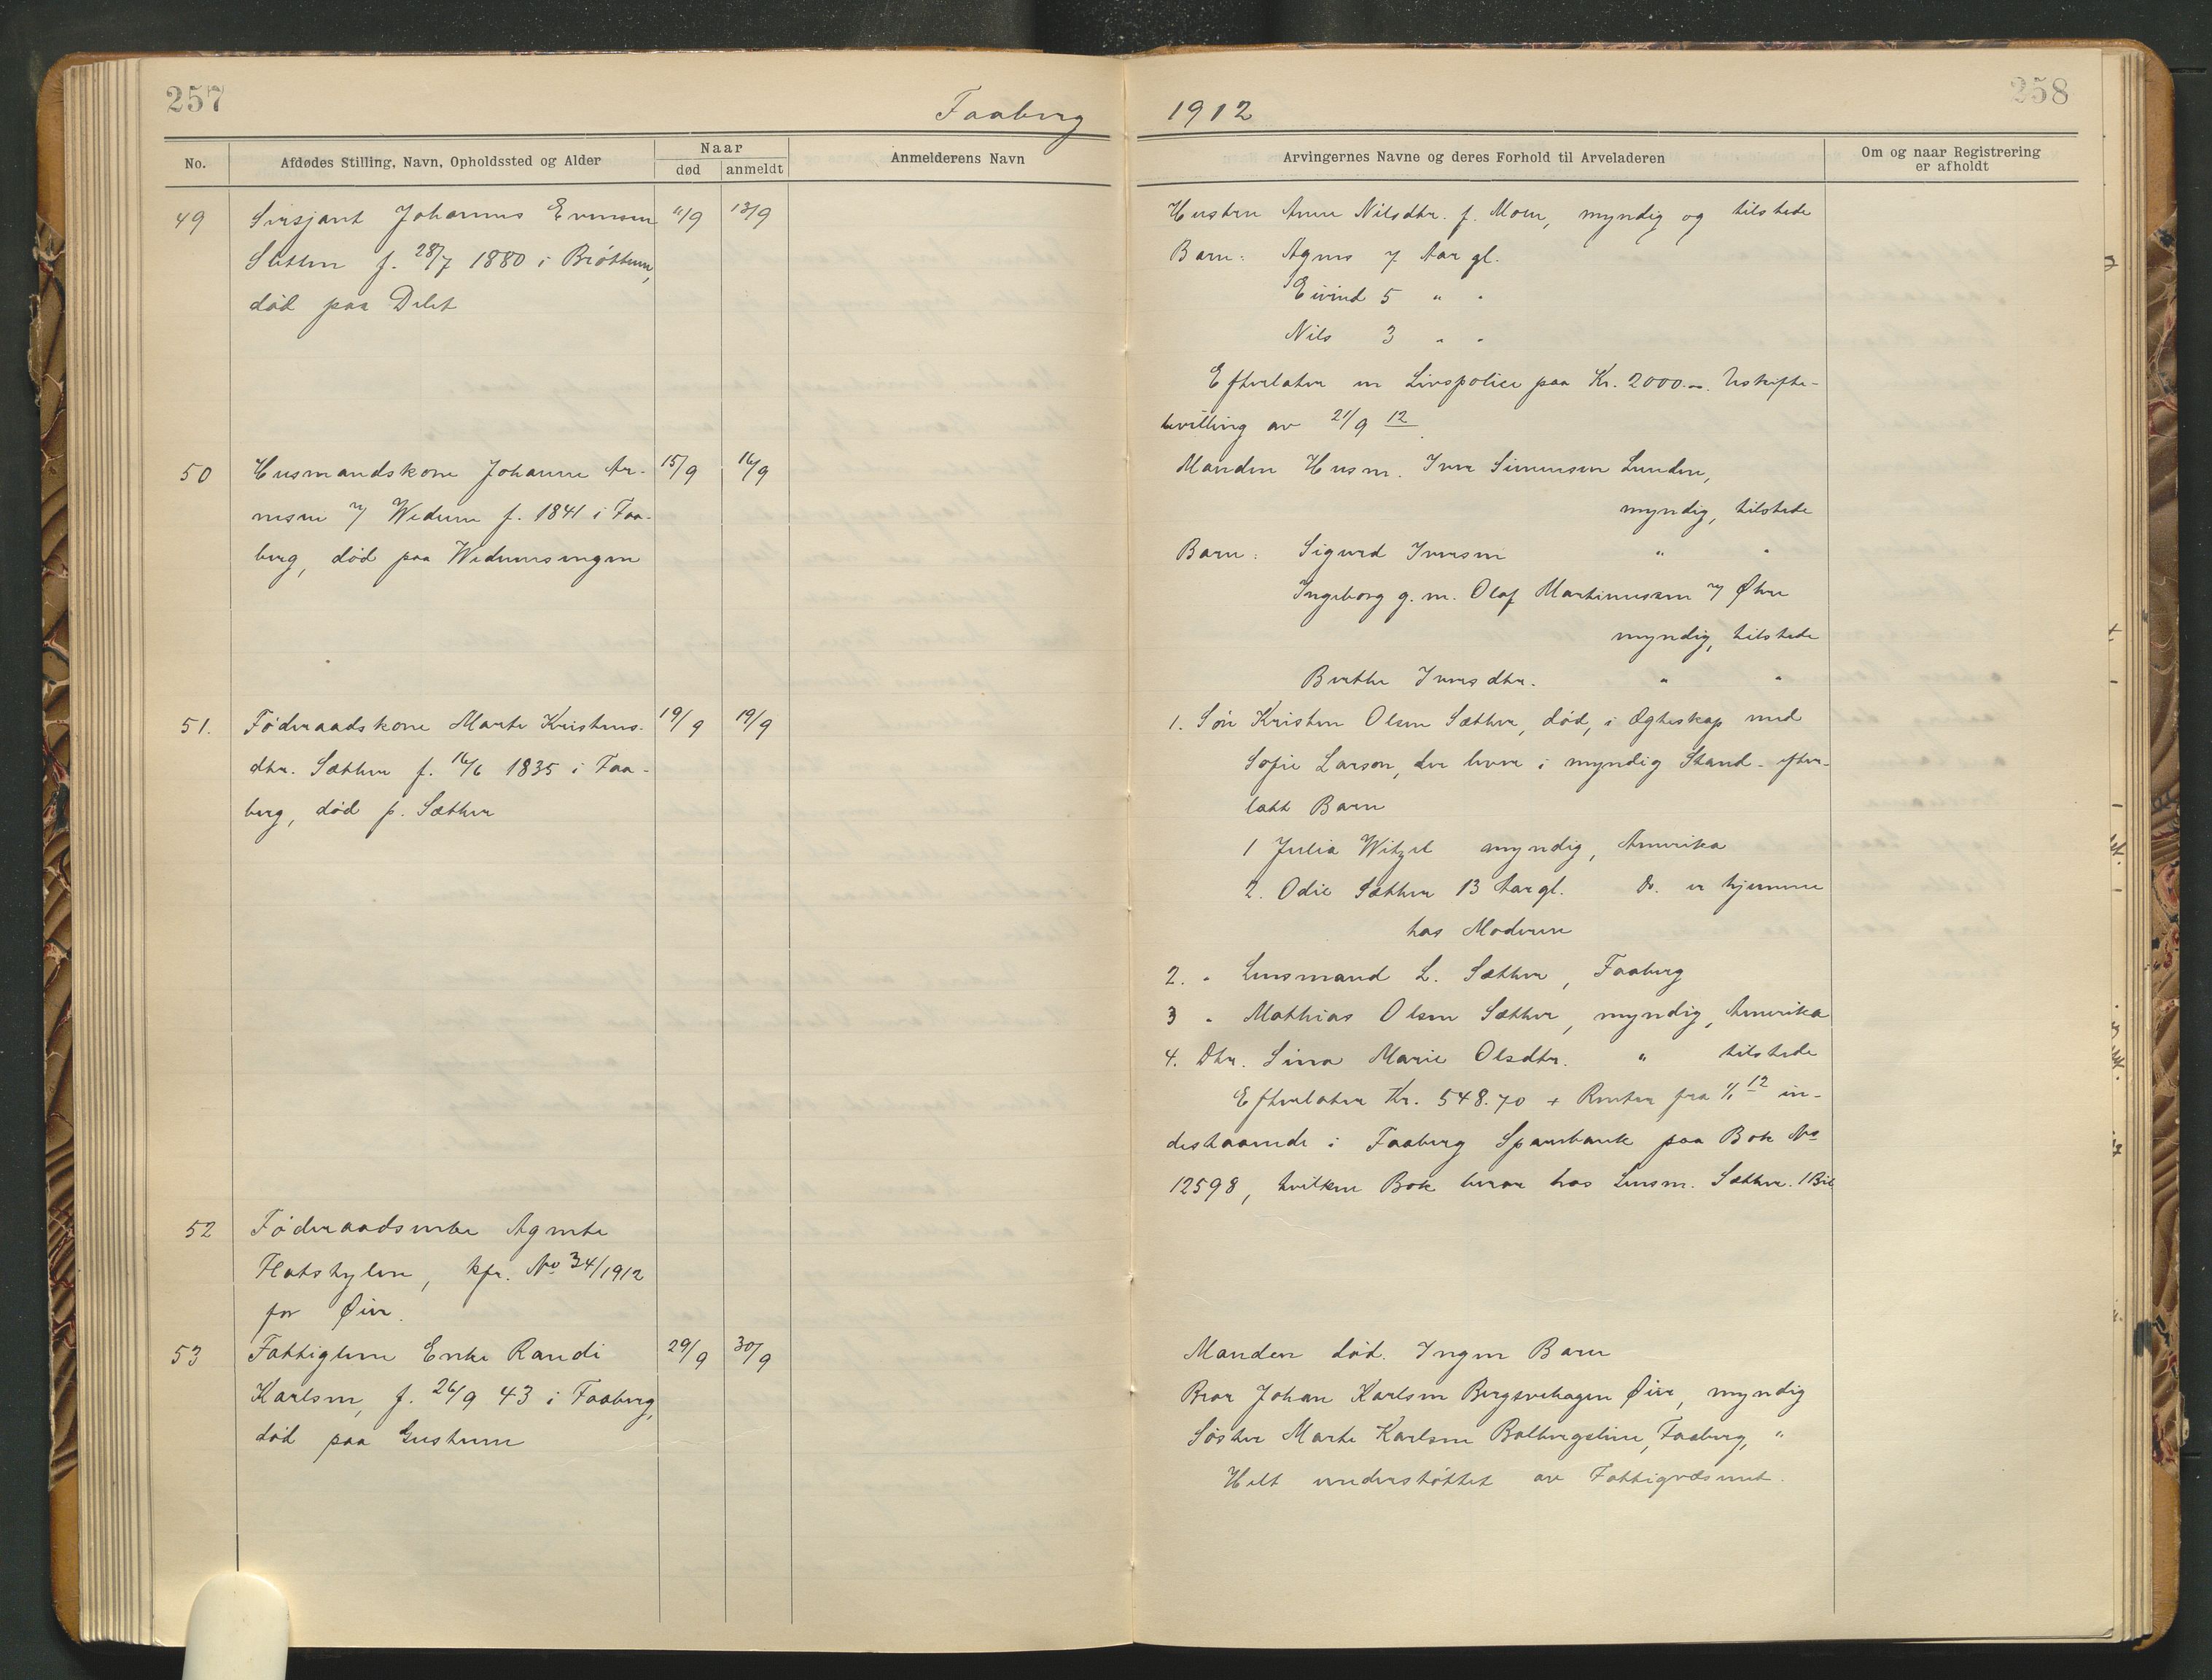 257
Faaberg
No.
Afdødes Stilling, Navn, Opholdssted og Alder
Naar
død
anmeldt
Anmelderens Navn
49
Sersjant Johannes Evensen
11/9
13/9
f. 28/7 1880 i Brøttum,
død paa
50
Husmandskone Johanne Ar-
15/9
16/9
nesen f. 1841 i Faa-
berg, død paa
51.
Føderaadskone Marte Kristens-
19/9
19/9
dtr. Sæther f. 16/6 1835 i Faa-
berg, død p. Sæther
52
Føderaadsenke Agnete
Flatstylen, kfr. No 34/1912
for Øier.
53
Fattiglem Enke Randi
29/9
30/9
Karlsen, f. 26/9 43 i Faaberg,
død paa
258
1912
Arvingernes Navne og deres Forhold til Arveladeren
Om og naar Registrering
er afholdt
Hustru Anne Nilsdtr. f. Moen, myndig og tilstede
Barn: Agnes 7 Aar gl.
Eivind 5 " "
Nils 3 " "
Efterlater en Livspolice paa Kr. 2000.–. Uskifte-
bevilling av 21/9 12
Manden Husm. Iver Simensen Lunden,
myndig, tilstede
Barn: Sigurd Iversen " "
Ingeborg g. m. Olaf Martinussen
myndig, tilstede
Berthe Iversdtr. " "
1. Søn Kristen Olsen Sæther, død, i Ægteskap med
Sofie Larson, der lever i myndig Stand - efter-
latt Barn
1 Julia Witzel myndig, Amerika
2. Odie Sæther 13 Aar gl. Do. er hjemme
hos Moderen
2. " Lensmand L. Sæther, Faaberg
3 " Mathias Olsen Sæther, myndig, Amerika
4. Dtr. Sina Marie Olsdtr. " tilstede
Efterlater Kr. 548.70 + Renter fra 1/1 12 in-
destaaende i Faaberg Sparebank paa Bok No
12598, hvilken Bok beror hos Lensm. Sæther. 1 Bil
Manden død. Ingen Barn
Bror Johan Karlsen Bergsvehagen Øier, myndig
Søster Marte Karlsen Balbergslien, Faaberg, "
Helt understøttet av Fattigvæsenet.